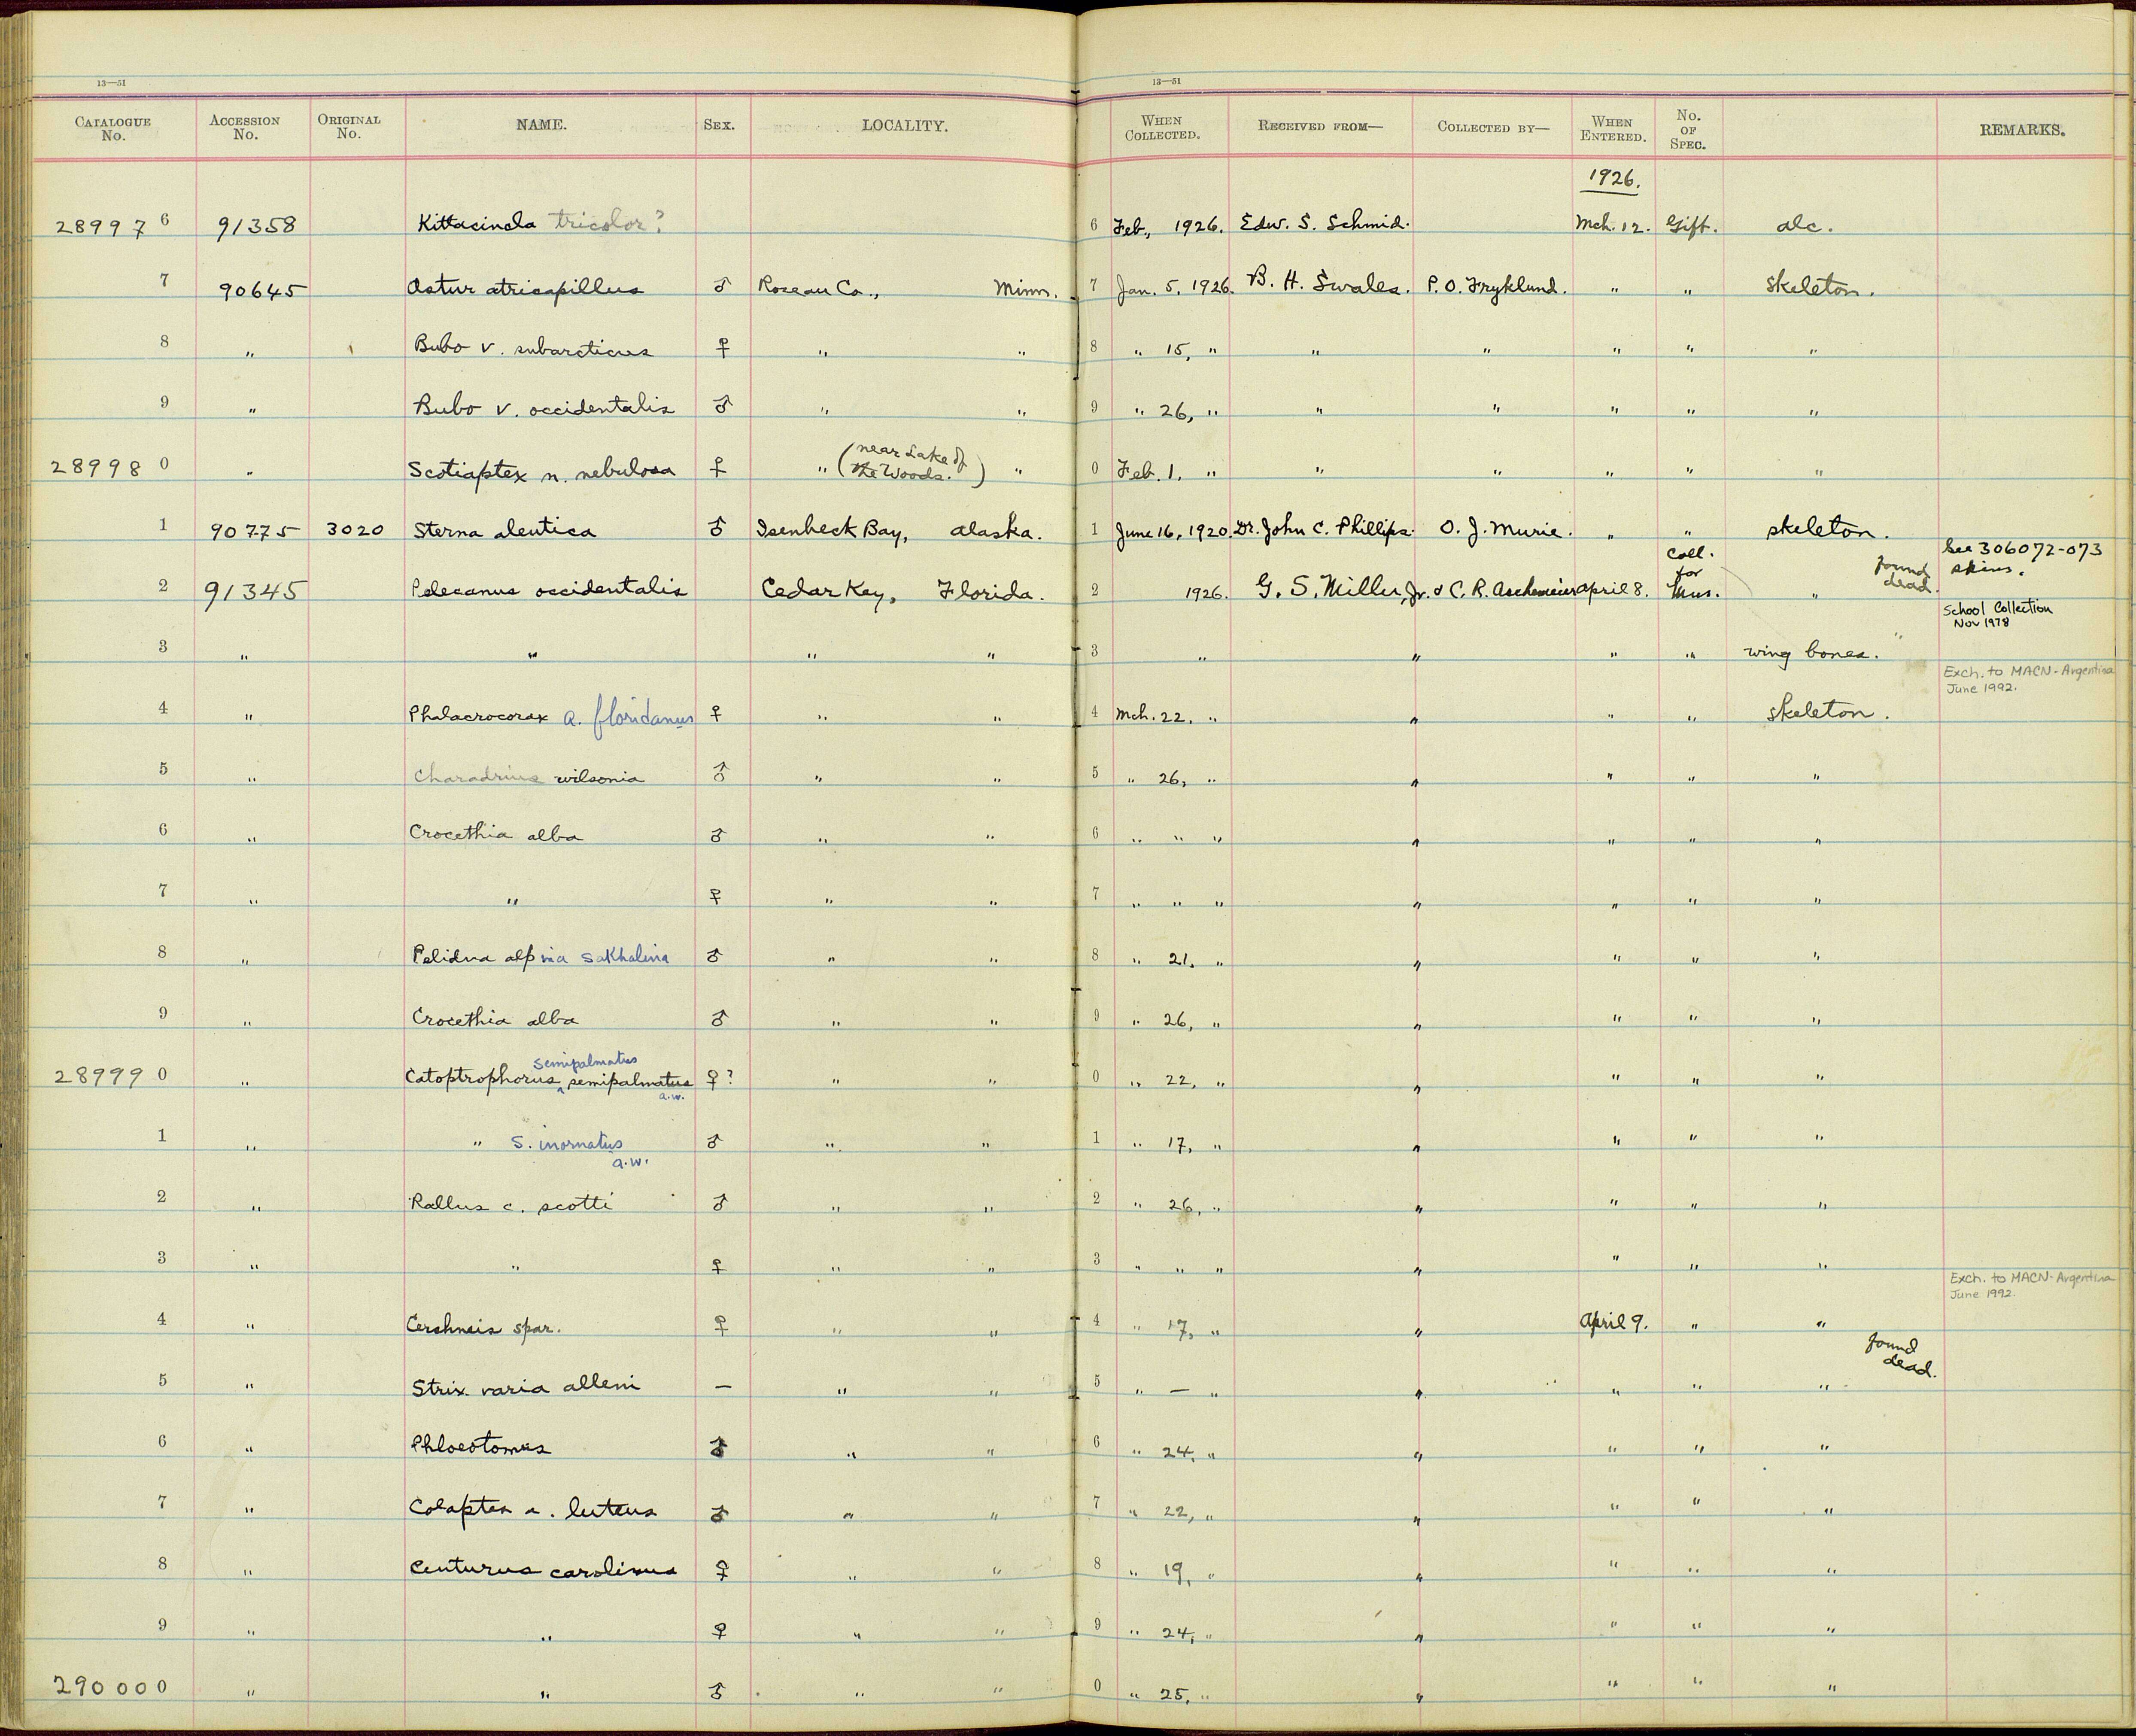 13—51
13—51
CATALOGUE No. ACCESSION No. ORIGINAL No. NAME. SEX. LOCALITY. WHEN COLLECTED. RECEIVED FROM— COLLECTED BY— WHEN ENTERED. No. OF SPEC. REMARKS.
1926.
28997 6 91358 Kittacincla tricolor? 6 Feb., 1926. Edw. S. Schmid. Mch. 12. Gift. alc.
7 90645 Astur atricapillus ♂ Roseau Co., Minn. 7 Jan. 5, 1926. B. H. Swales. P. O. Fryklund. " " skeleton.
8 " Bubo v. subarcticus ♀ " " 8 " 15, " " " " " "
9 " Bubo v. occidentalis ♂ " " 9 " 26, " " " " " "
28998 0 " Scotiaptex n. nebulosa ♀ " (near Lake of the Woods.) " 0 Feb. 1, " " " " " "
1 90775 3020 Sterna aleutica ♂ Isenbeck Bay, Alaska. 1 June 16, 1920. Dr. John C. Phillips. O. J. Murie. " " skeleton.
See 306072-073 skins.
2 91345 Pelecanus occidentalis Cedar Key, Florida. 2 1926. G. S. Miller, Jr. & C. R. Aschemeier April 8. Coll. for Mus. " found dead.
School Collection
Nov 1978
3 " " " " 3 " " " " wing bones. "
Exch. to MACN-Argentina
June 1992.
4 " Phalacrocorax a. floridanus ♀ " " 4 Mch. 22, " " " " skeleton.
5 " Charadrius wilsonia ♂ " " 5 " 26, " " " " "
6 " Crocethia alba ♂ " " 6 " " " " " " "
7 " " ♀ " " 7 " " " " " " "
8 " Pelidna alpina sakhalina ♂ " " 8 " 21, " " " " "
9 " Crocethia alba ♂ " " 9 " 26, " " " " "
semipalmatus
28999 0 " Catoptrophorus ^ semipalmatus ♀? " " 0 " 22, " " " " "
a.w.
1 " " s. inornatus ♂ " " 1 " 17, " " " " "
a.w.
2 " Rallus c. scotti ♂ " " 2 " 26, " " " " "
3 " " ♀ " " 3 " " " " " " "
Exch. to MACN-Argentina
June 1992.
4 " Cerchneis spar. ♀ " " 4 " 17, " " April 9. " "
found dead.
5 " Strix varia alleni — " " 5 " — " " " " "
6 " Phloeotomus ♂ " " 6 " 24, " " " " "
7 " Colaptes a. luteus ♂ " " 7 " 22, " " " " "
8 " Centurus carolinus ♀ " " 8 " 19, " " " " "
9 " " ♀ " " 9 " 24, " " " " "
290000 " " ♂ " " 0 " 25, " " " " "